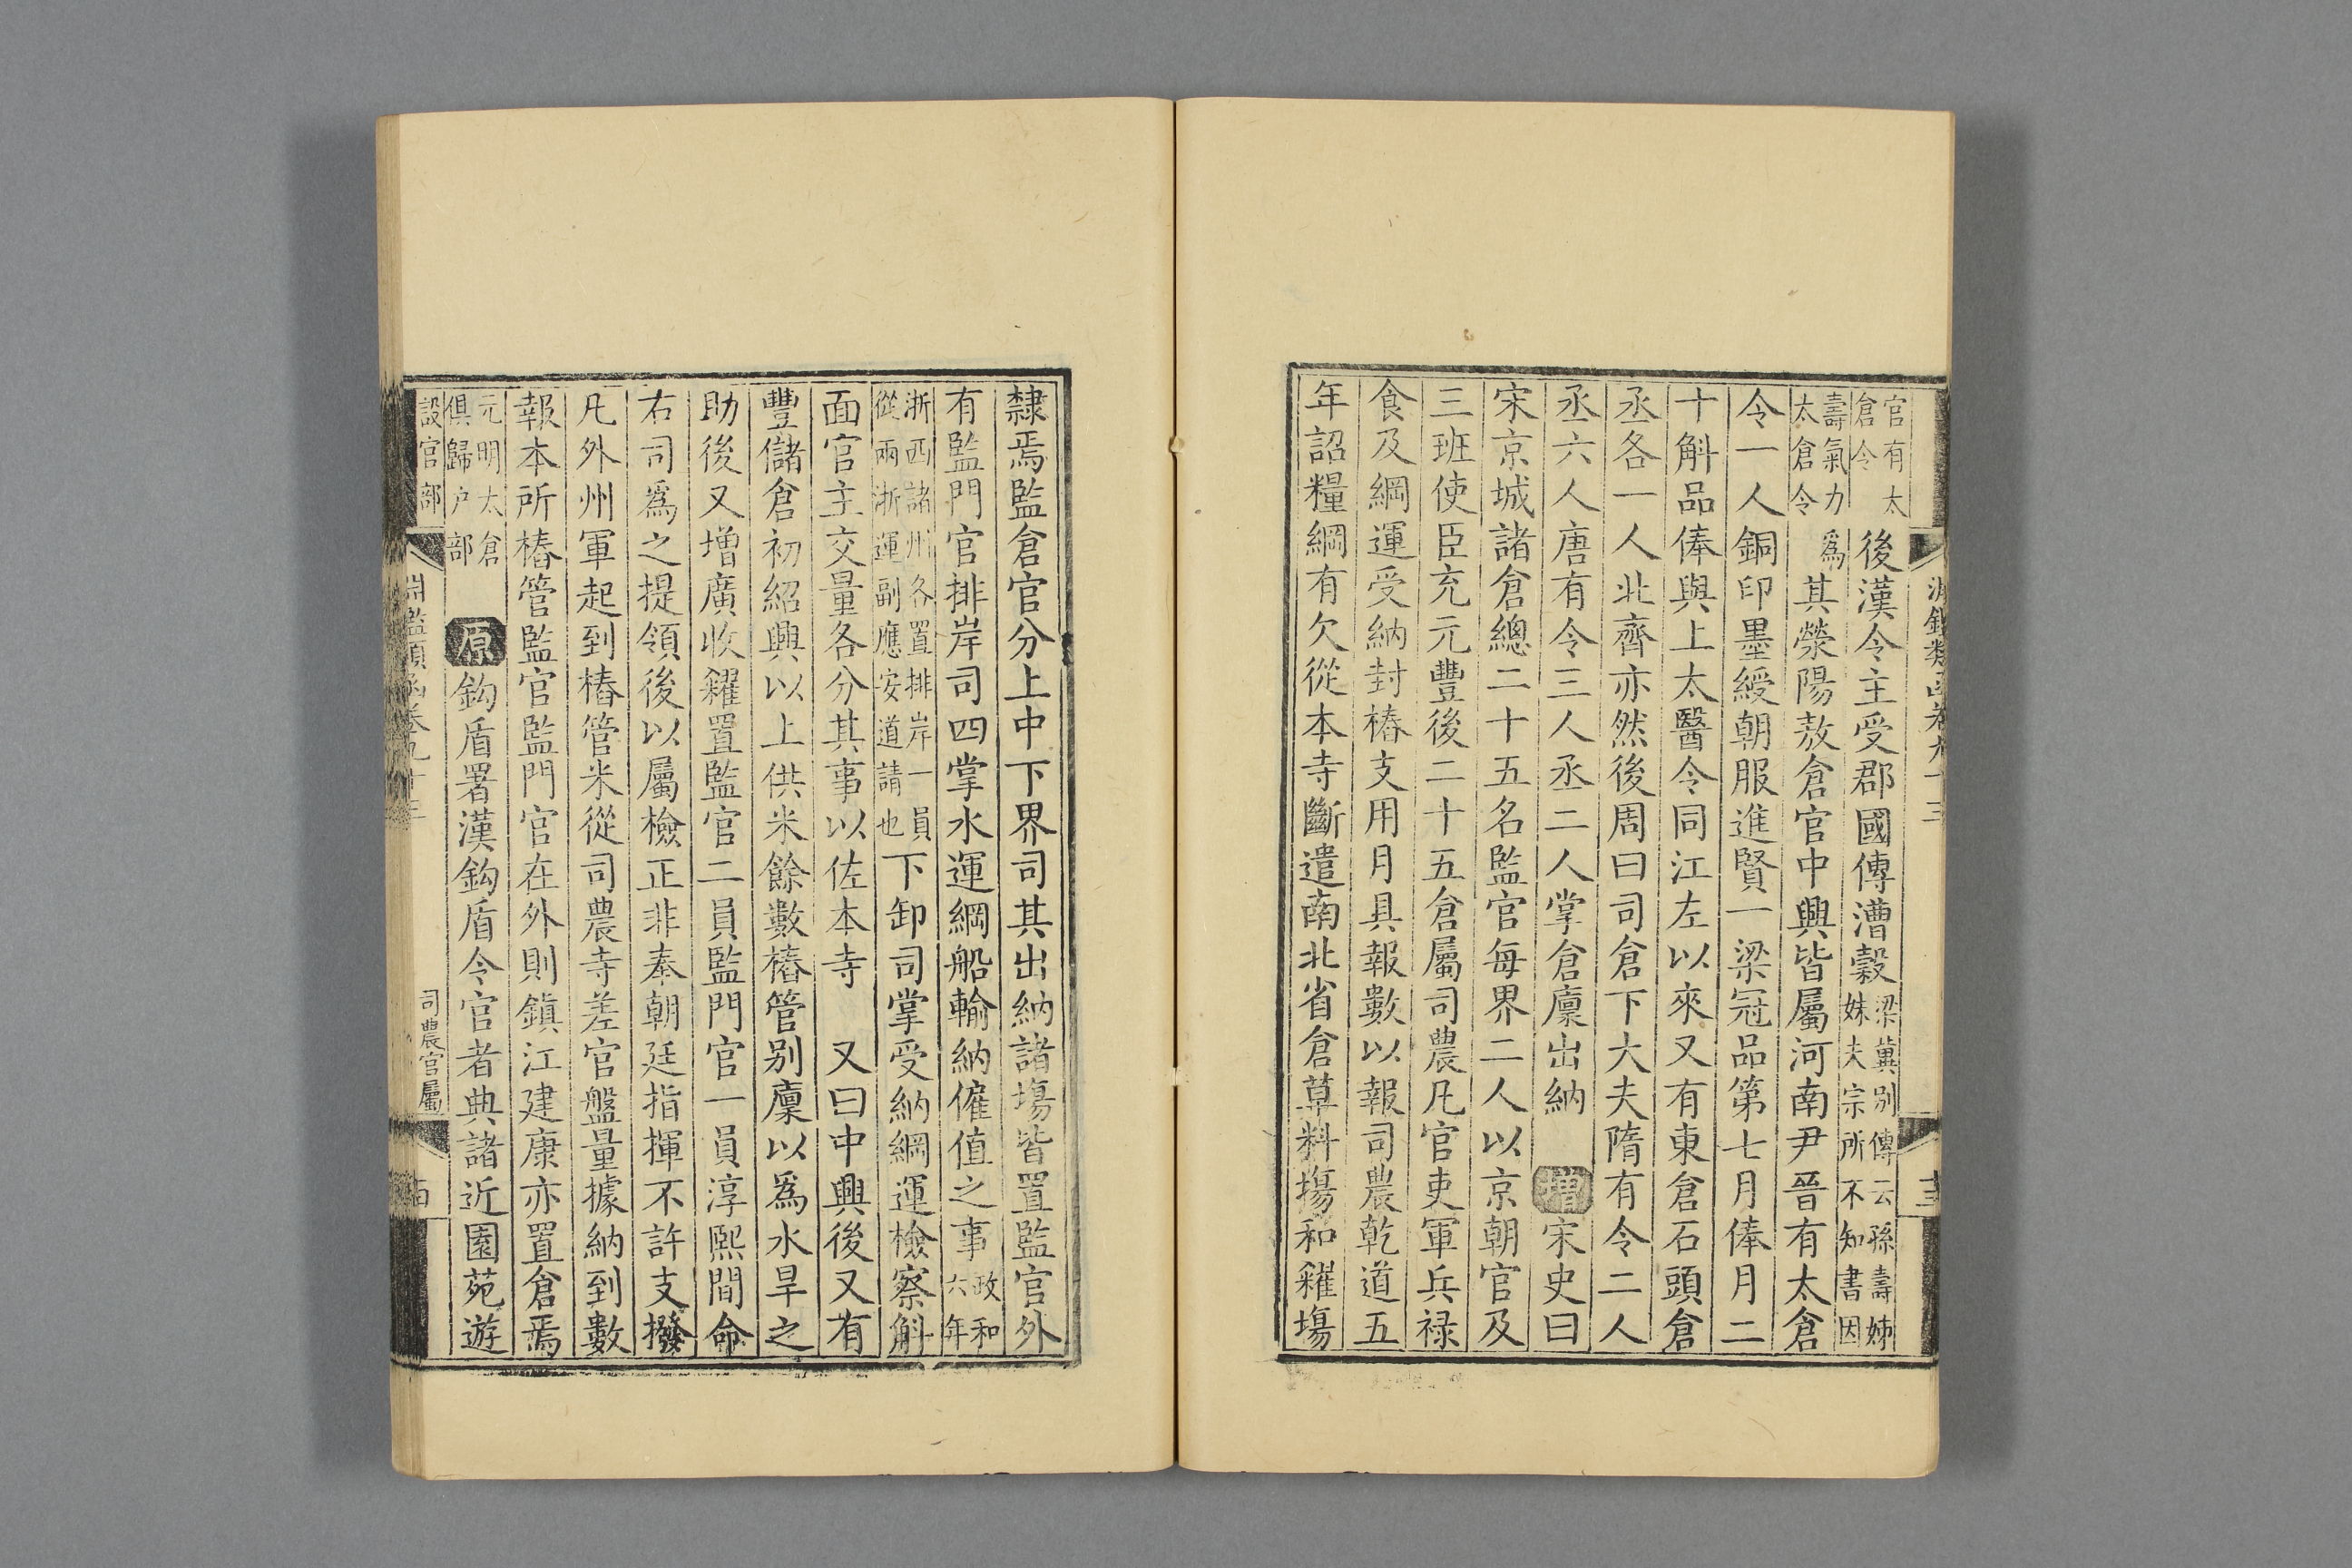 淵鑑類函卷九十三
十三
官有太倉令後漢令主受郡國傳漕穀梁冀別傳云孫壽姊妹夫宗所不知書因
壽氣力為太倉令其滎陽敖倉官中興皆屬河南尹晉有太倉
令一人銅印墨綬朝服進賢一梁冠品第七月俸月二
十斛品俸與上太醫令同江左以來又有東倉石頭倉
丞各一人北齊亦然後周曰司倉下大夫隋有令二人
丞六人唐有令三人丞二人掌倉廩出納 增宋史曰
宋京城諸倉總二十五名監官每界二人以京朝官及
三班使臣充元豐後二十五倉屬司農凡官吏軍兵祿
食及綱運受納封樁支用月具報數以報司農乾道五
年詔糧綱有欠從本寺斷遣南北省倉草料塲和糴塲
隸焉監倉官分上中下界司其出納諸塲皆置監官外
有監門官排岸司四掌水運綱船輸納僱值之事政和六年
浙西諸州各置排岸一員從兩浙運副應安道請也下卸司掌受納綱運檢察斛
面官主交量各分其事以佐本寺 又曰中興後又有
豐儲倉初紹興以上供米餘數樁管别廩以爲水旱之
助後又增廣收糴置監官二員監門官一員淳熙間命
右司爲之提領後以屬檢正非奉朝廷指揮不許支撥
凡外州軍起到樁管米從司農寺差官盤量據納到數
報本所樁管監官監門官在外則鎮江建康亦置倉焉
元明太倉俱歸户部 原鈎盾署漢鈎盾令官者典諸近園苑遊
設官部
淵鑑類函卷九十三
司農官屬